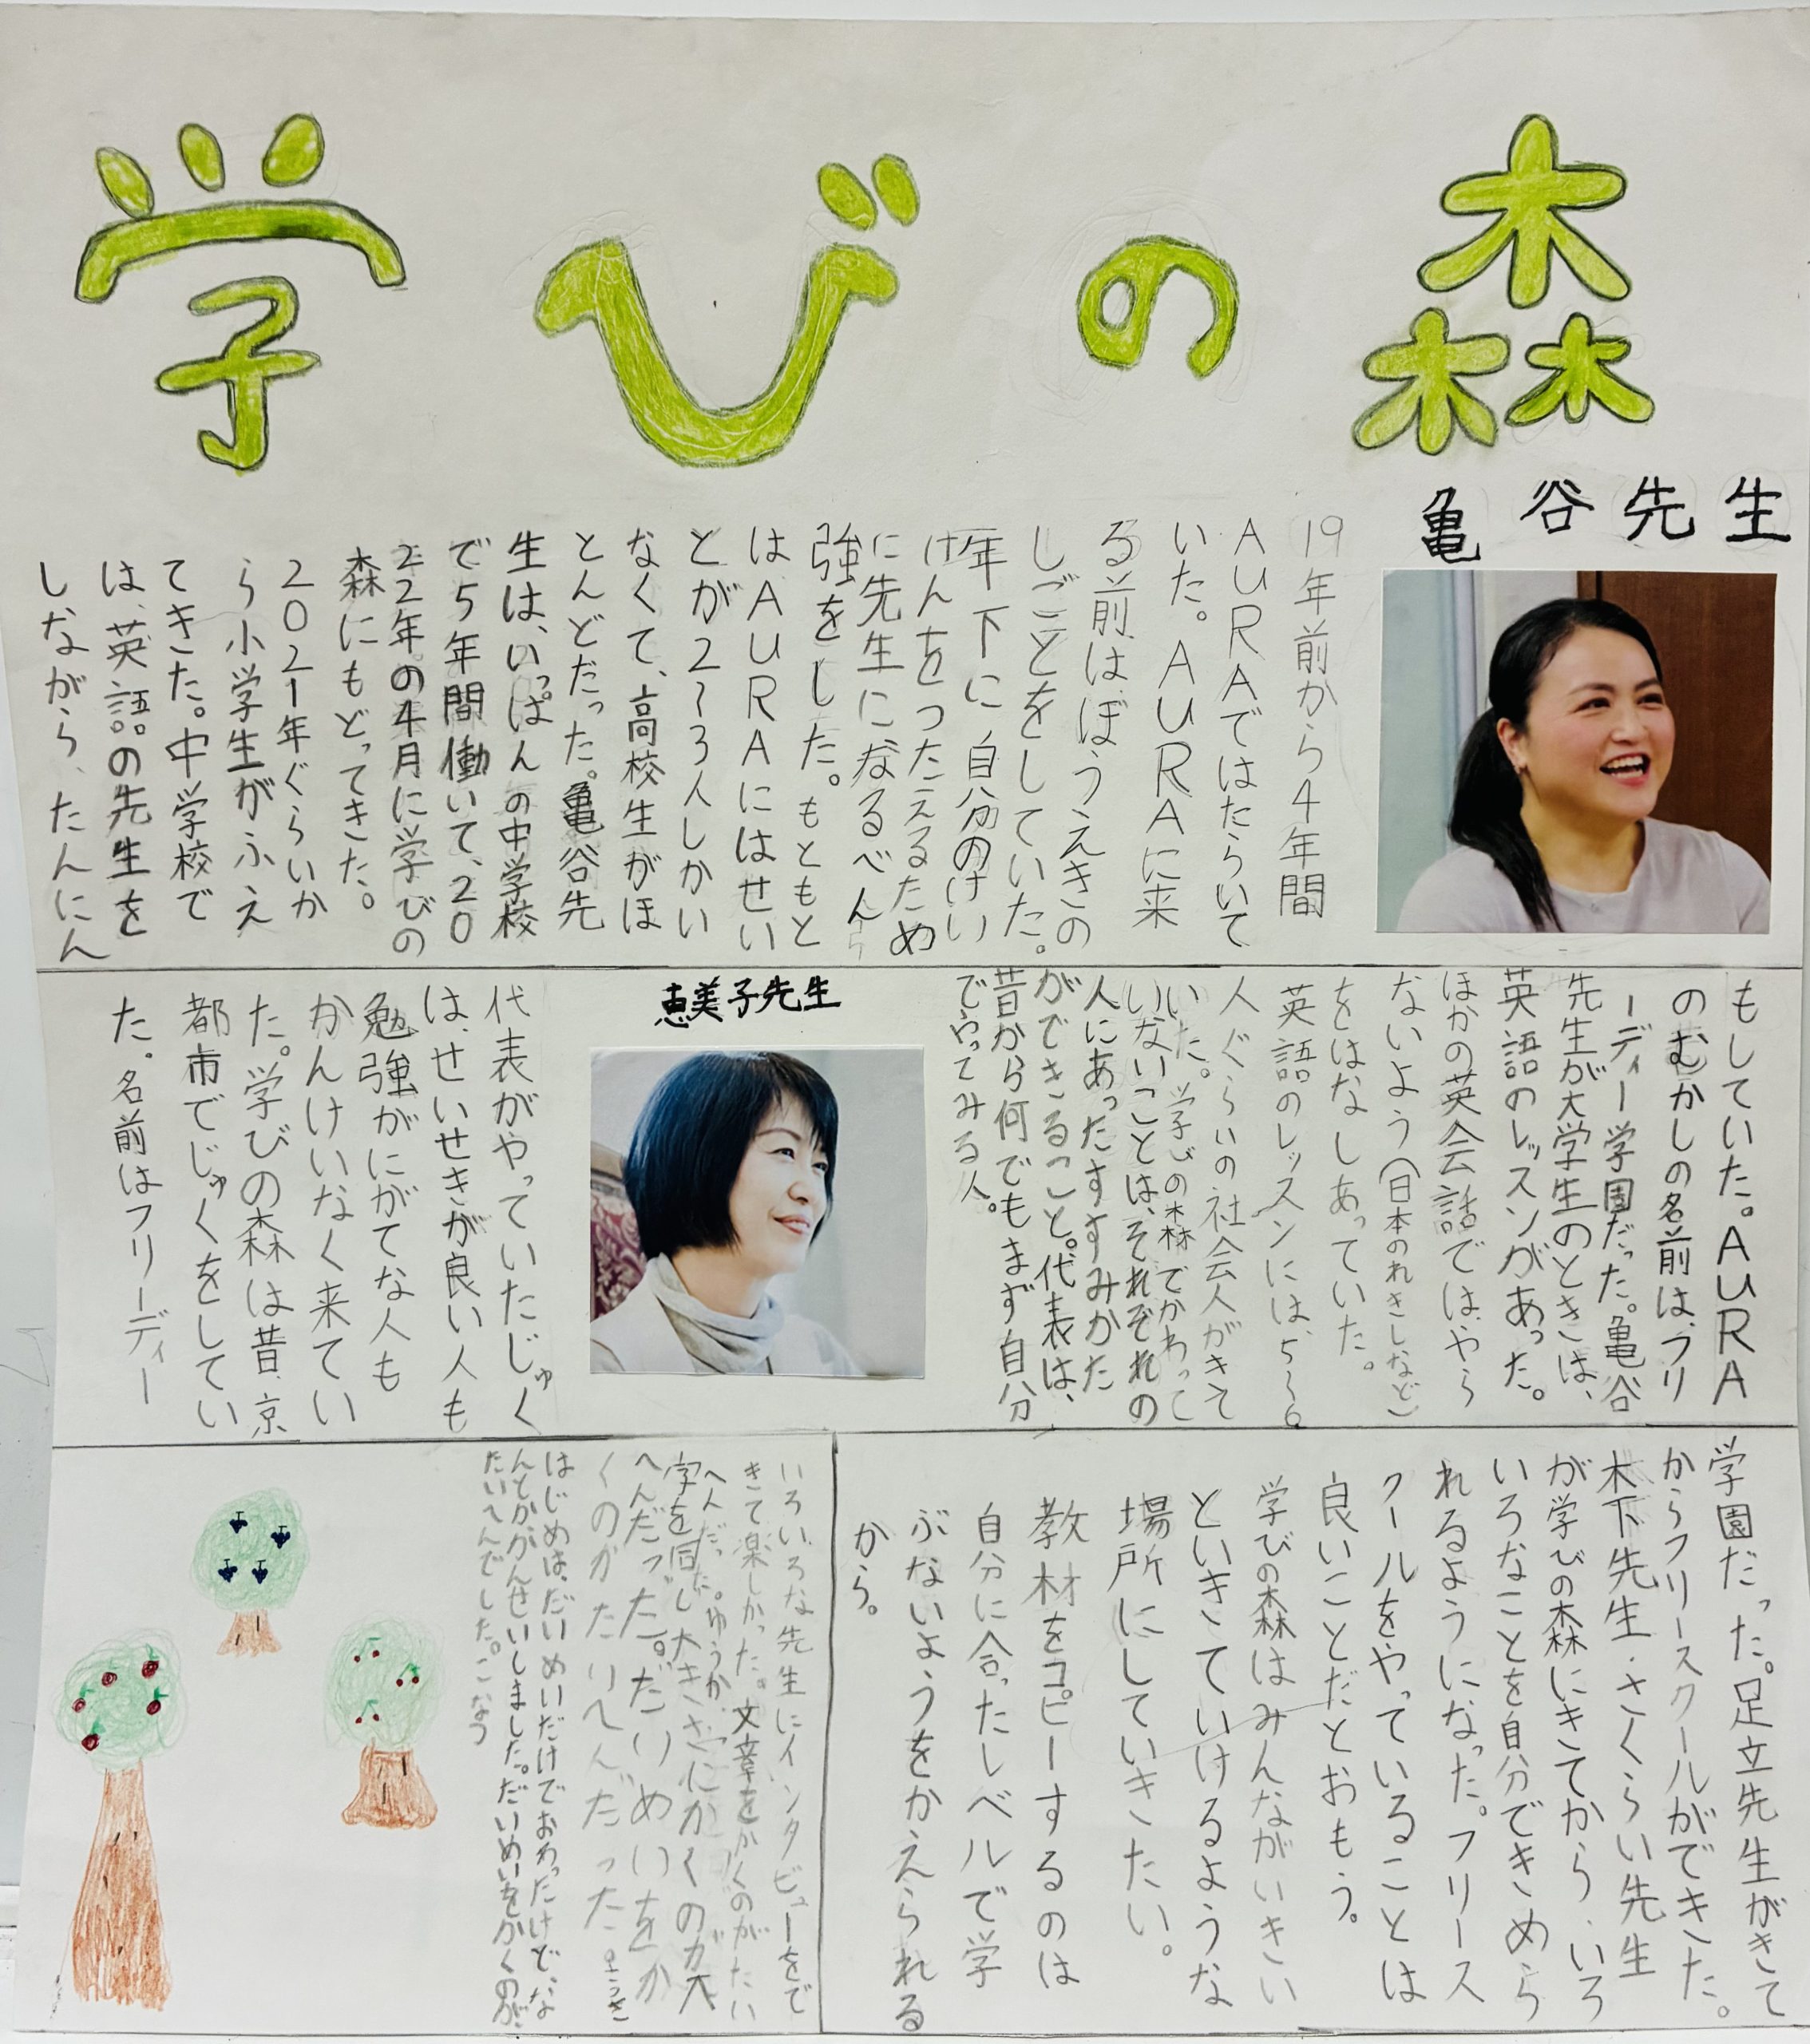 学びの森
亀谷先生
19年前から4年間
AURAではたらいて
いた。AURAに来
る前はぼうえきの
しごとをしていた。
年下に自分のけい
けんをつたえるため
に先生になるべん
強をした。もともと
はAURAにはせい
とが2〜3人しかい
なくて、高校生がほ
とんどだった。亀谷先
生は、いっぱんの中学校
で5年間働いて、20
22年の4月に学びの
森にもどってきた。
2021年ぐらいか
ら小学生がふえ
てきた。中学校で
は、英語の先生を
しながら、たんにん
もしていた。AURA
のむかしの名前は、フリ
ーディー学園だった。亀谷
先生が大学生のときは、
英語のレッスンがあった。
ほかの英会話では、やら
ないよう(日本のれきしなど)
をはなしあっていた。
英語のレッスンには、5〜6
人ぐらいの社会人がきて
いた。学びの森でかわって
いないことは、それぞれの
人にあったすすみかた
ができること。代表は、
昔から何でもまず自分
でやってみる人。
恵美子先生
代表がやっていたじゅく
は、せいせきが良い人も
勉強がにがてな人も
かんけいなく来てい
た。学びの森は昔、京
都市でじゅくをしてい
た。名前はフリーディー
学園だった。足立先生がきて
からフリースクールができた。
木下先生・さくらい先生
が学びの森にきてから、いろ
いろなことを自分できめら
れるようになった。フリース
クールをやっていることは
良いことだとおもう。
学びの森はみんながいきい
きといきていけるような
場所にしていきたい。
教材をコピーするのは
自分に合ったレベルで学
ぶないようをかえられる
から。
いろいろな先生にインタビューをで
きて楽しかった。文章をかくのがたい
へんだった。ゆうか
字を同じ大きさにかくのが大
へんだった。だいめいをか
くのがたいへんだった。
はじめは、だいめいだけでおわったけど、な
んとかかんせいしました。だいめいをかくのが、
たいへんでした。こなつ